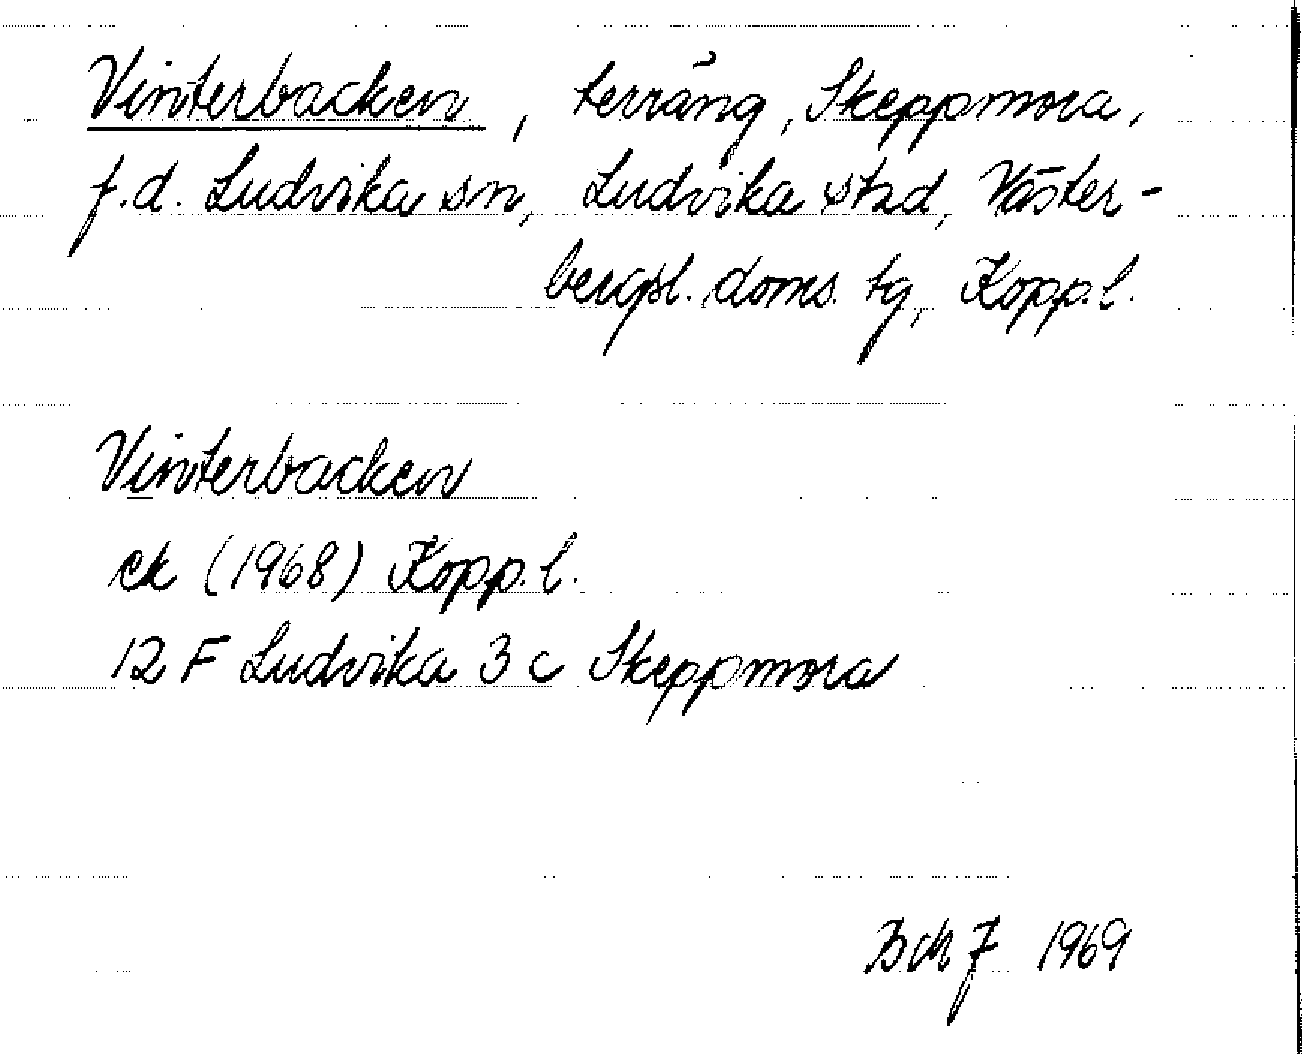 Vinterbacken, terräng, Skeppmora,
f.d. Ludvika sn, Ludvika stad, Väster-
bergsl. doms. tg, Kopp.l.
Vinterbacken
ek (1968) Kopp.l.
12 F Ludvika 3 c Skeppmora
1969